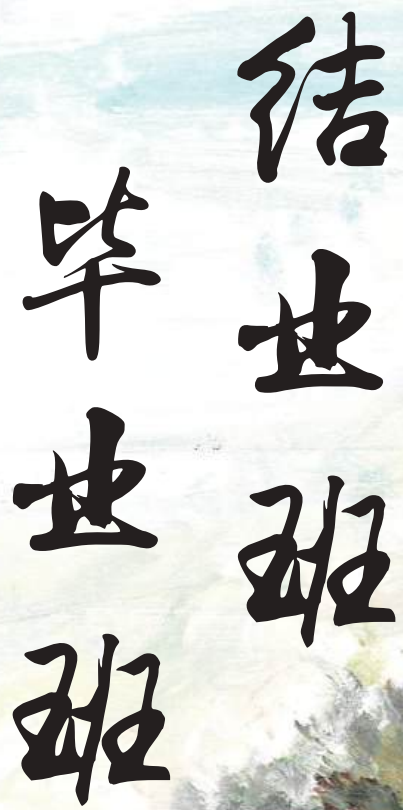 结业班
毕业班